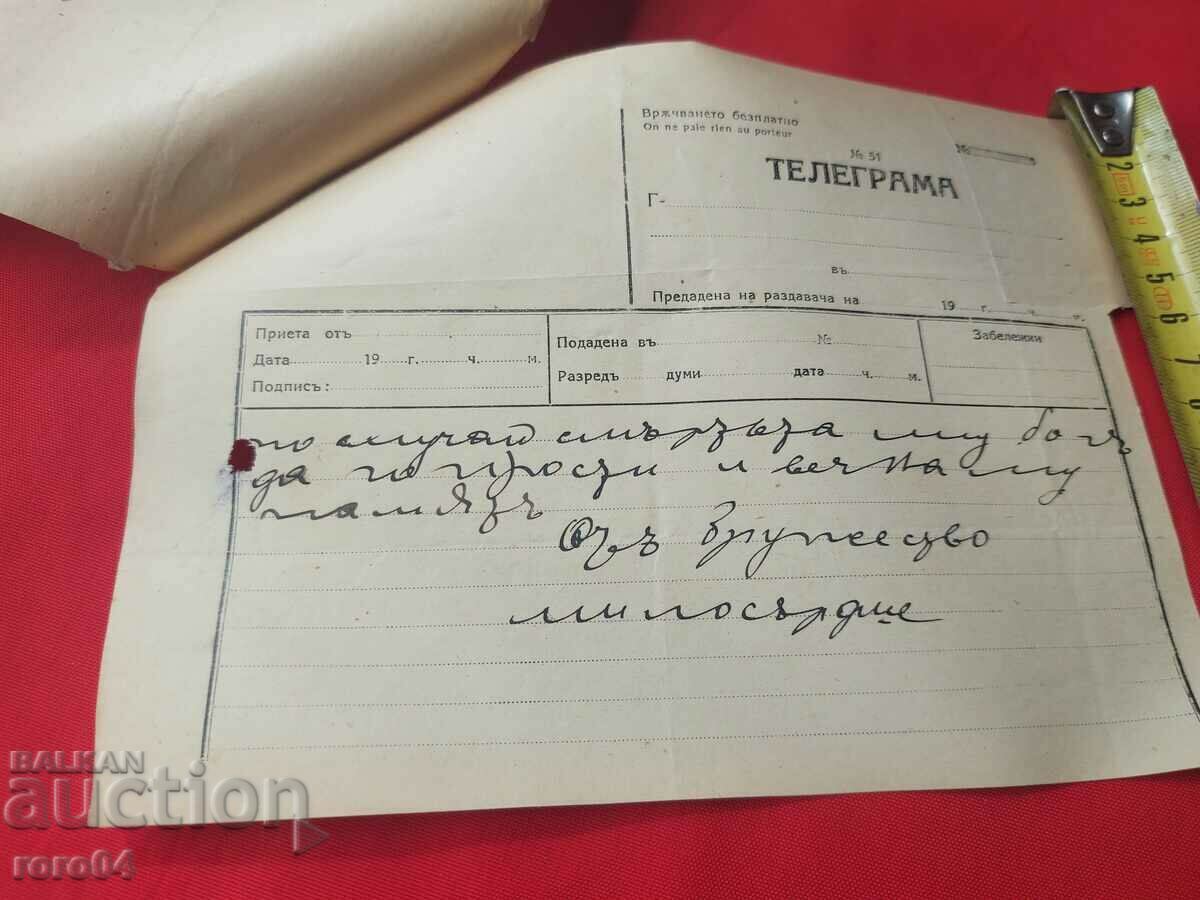 Врѫчването безплатно
On ne paie rien au porteur
№ 51
№
ТЕЛЕГРАМА
Г-
въ
Предадена на раздавача на 19 г. ч. м.
Приета отъ
Дата 19 г. ч. м.
Подписъ:
Подадена въ №
Разредъ думи дата ч. м.
Забележки
по случай смъртьта му богъ
да го прости и вечна му
паметъ
Отъ Дружество
милосърдие
2 3 4 5 6 7 8
BALKAN
auction
roro04